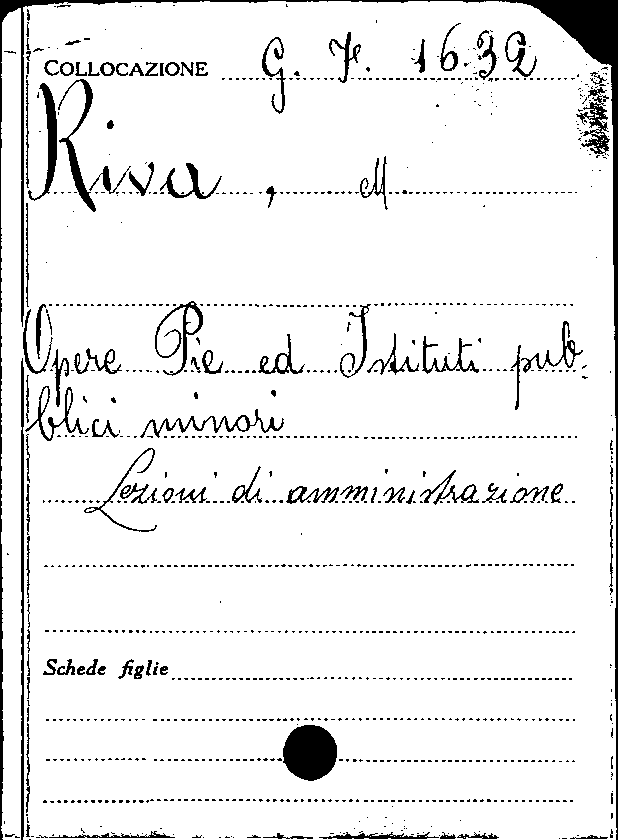 COLLOCAZIONE G. F. 16.39
Riva, M.
Opere Pie ed Istituti pub-
blici minori
Lezioni di amministrazione
Schede figlie